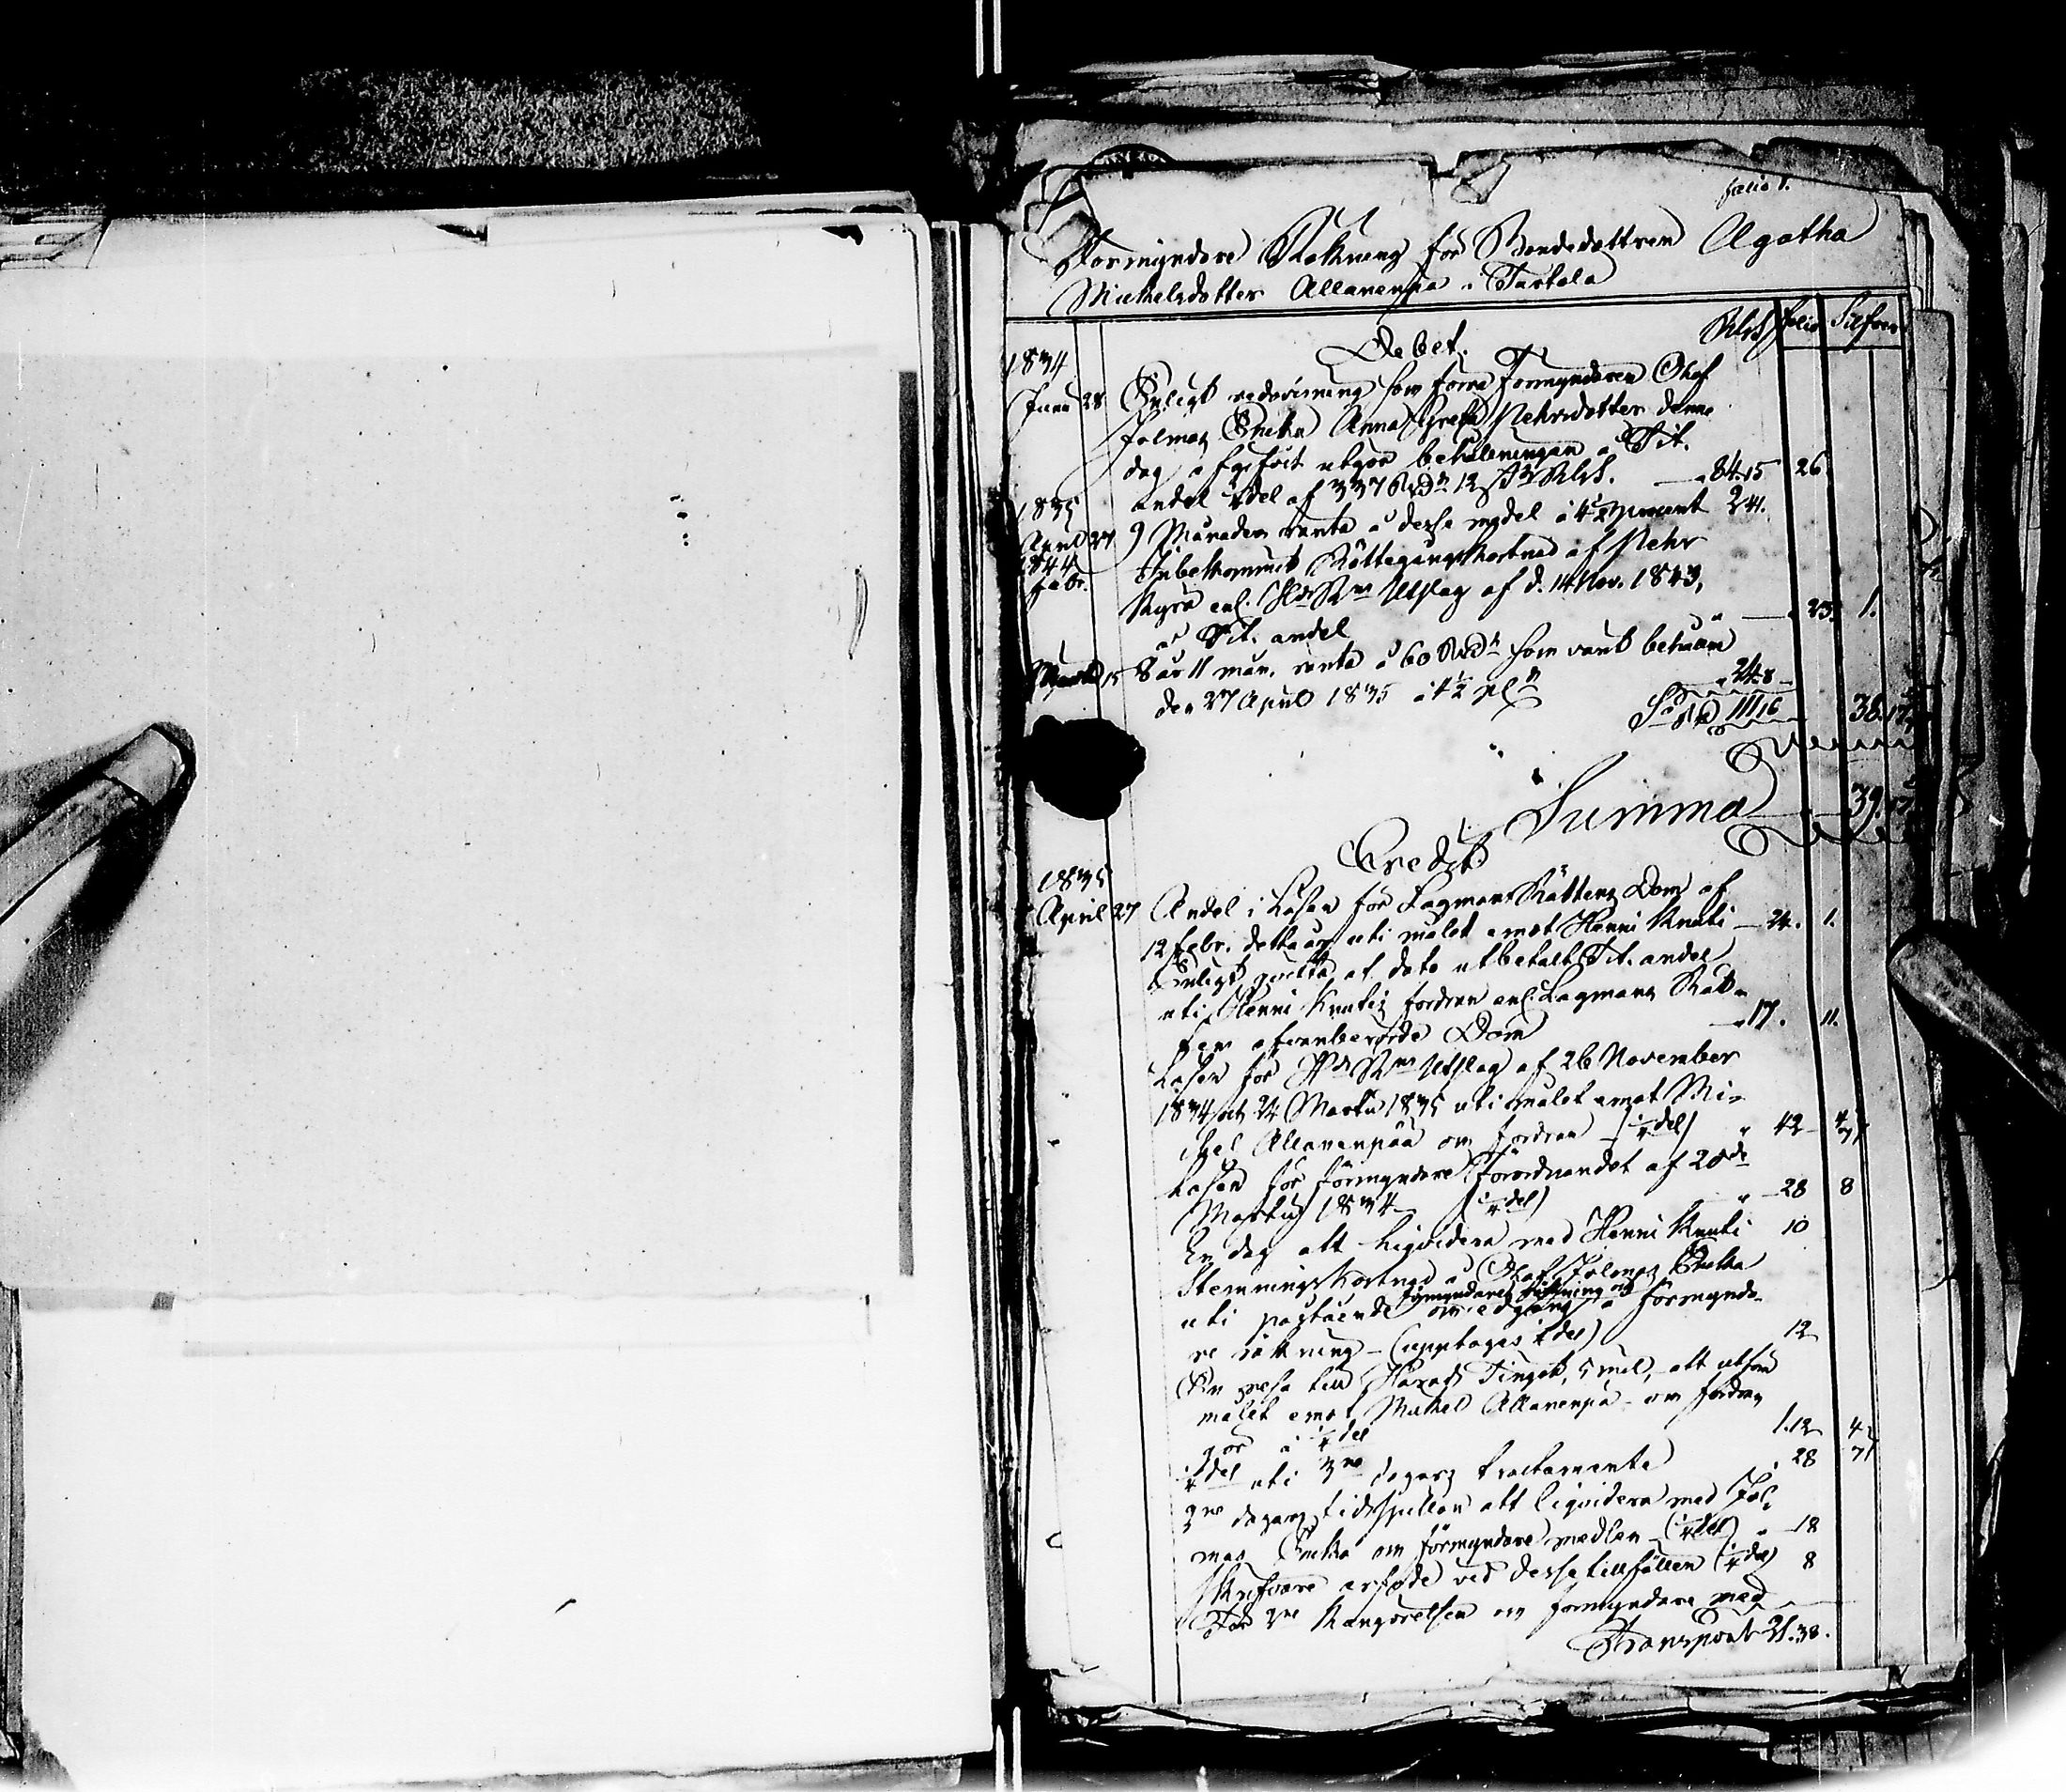 folio 1.
Förmyndare Räkning för Bondedottren Agatha
Michelsdotter Allanenpää i Tastola
RdrS folio Silfver
Debet.
1834
Junii 28 Enligt redovisning som förra Förmyndaren Olof
Jolmas Enka Anna Greta Pehrsdotter denne
dag afgifvit utgör behållningen à Tit.
andel ¼del af 337 Rd 12 s RdrS. 84.15 26.
1835
April 27 9 Månaders ranta å desse medel à 4½ procent 2.41.
1844
Febr. Inbekommit Rättegångskostnad af Pehr
enl. Utslag af d. 14 Nov. 1843,
à Tit. andel 23. 1.
Martii 15 8 år 11 mån. ranta å 60 som varit behållne
den 27 April 1835 à 4½ 24.8
Sa Rd 111.16 38.17
Summa 39.17
Credit
1835
April 27 Andel i Lösen för Lagmans Rättens Dom af
12 Febr. detta år uti målet emot Henni Knuti 24. 1.
Enligt qvitto af dato utbetalt Tit. andel
uti Henni Knutis fordran enl. Lagmans Rät-
tens ofvanberörde Dom 17. 11.
Lösen för Utslag af 26 November
1834 och 24 Martii 1835 uti målet emot Mi-
chel Allanenpää om fordran (¼del) 42
Lösen för Förmyndare Förordnandet af 28de
Martii 1834 (¼del) 28 8
En dag att liqvidera med Henni Knuti 10
Stemningskostnad å Olof Jolmas Enka
förmyndares
uti påstående om edgång å förmynda-
re räkning - (upptages ¼del) 12
En resa till Härads Tinget, 5 mil, att utföra
målet emot Michel Allanenpä - om fordran
gör à ¼del 1.12 4
¼del uti 3ne dagars tractamente 28 7
3ne dagars tidspillan att liqvidera med Jol-
mas Enka om förmyndare medlen - (¼del) 18
Skrifvare arfvode vid desse tillfällen (¼del) 8
För 3ne Kungörelser om förmyndare med
Transport 21.38.